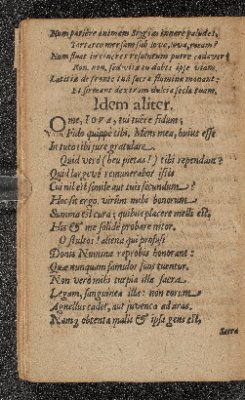 Num patiere animam Stygias innare paludes,
Tartareo mersam sub Iove, Iova, vocam?
Num sinas in cineres resolutum putre cadaver?
Non. non. sed vitae tu dabis ipse viam.
Laetitia de fronte tua sacra flumina manant:
Et firmant dextram dulcia secla tuam.
Idem aliter.
O me, Iova, tui tuere fidum;
Fido quippe tibi, Mens mea, huius esse
In tuto tibi iure gratulare.
Quid verò (heu pietas!) tibi rependam?
Quid largevè remunerabor istis
Cui nil est simile aut tuis secundum?
Hoc sit ergo. virûm mihi bonorum
Summa est cura; quibus placere melle est,
His & me solidè probare nitor.
O stultos! aliena qui profusi
Donis Numina reprobis honorant:
Quae nunquam famulos suos tuentur.
Non verò mihi turpia illa sacra
Legam, sanguinea illa: non eorum
Agnellus cadet, aut juvenca ad aras.
Namq; obtenta malis & ipsi gens est,
Sacra